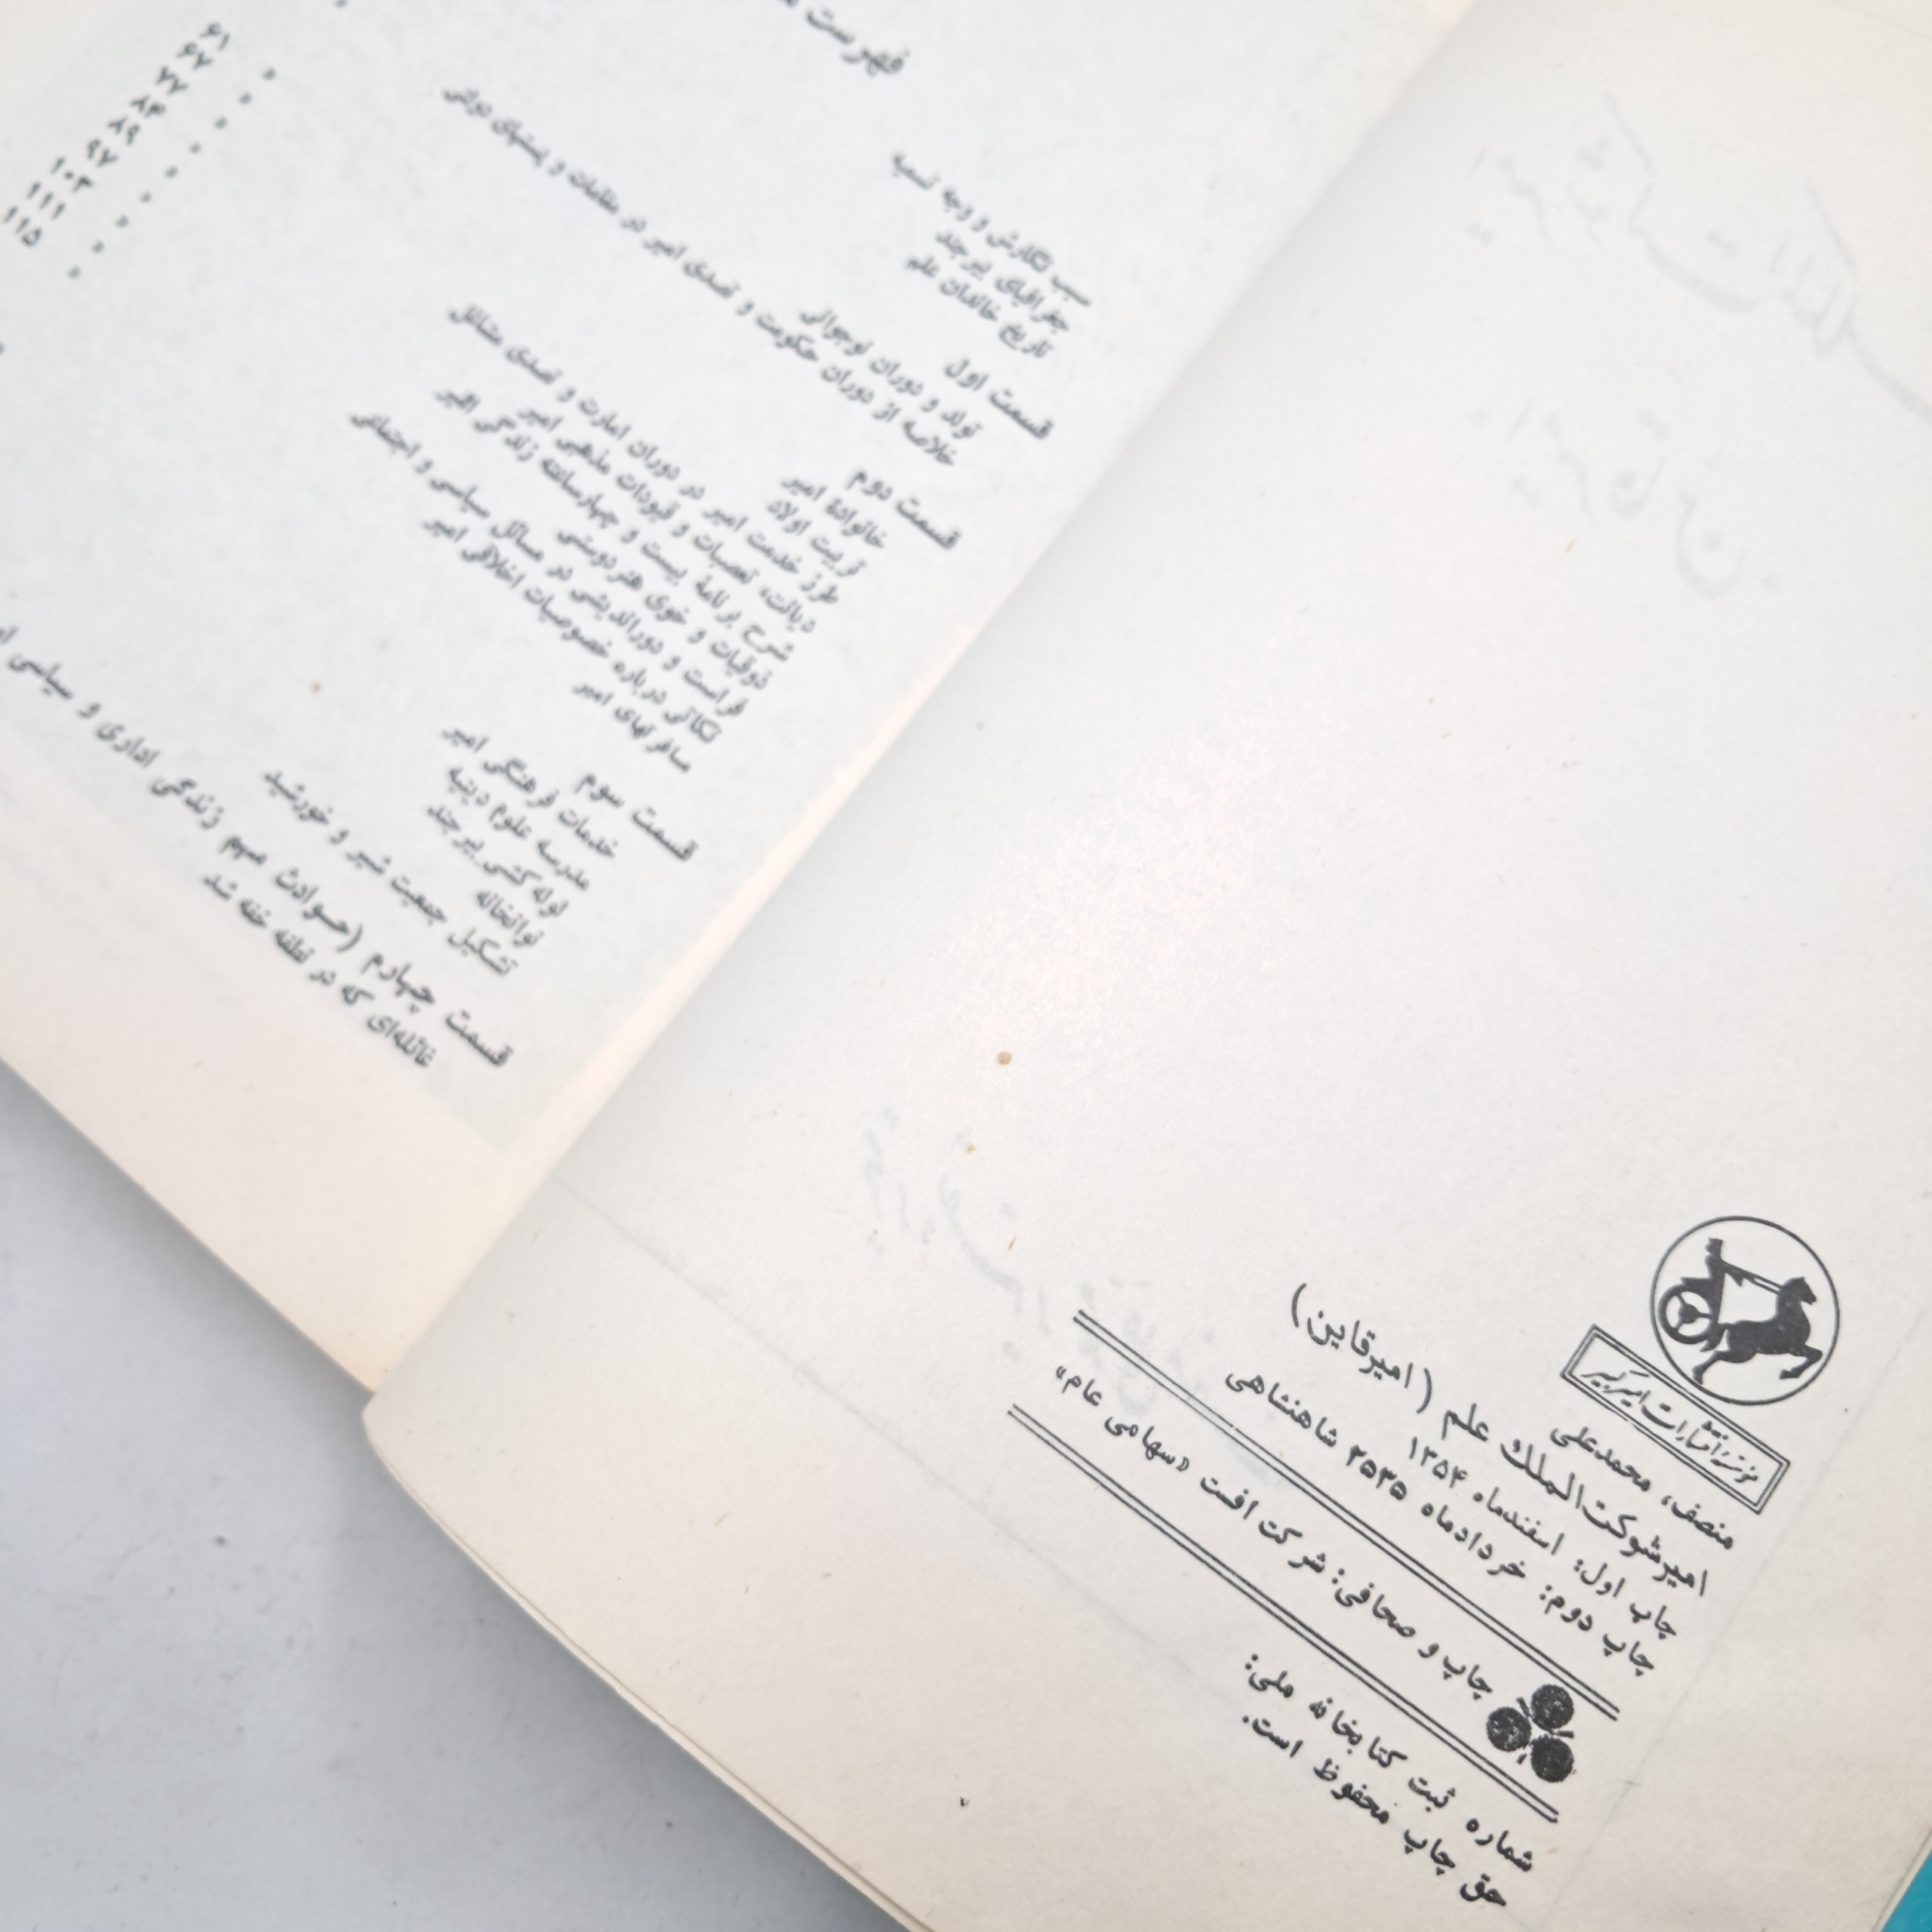 مؤسسه انتشارات امیرکبیر
منصف، محمدعلی
امیرشوکت‌الملك علم (امیرقاین)
چاپ اول: اسفندماه ۱۳۵۴
چاپ دوم: خردادماه ۲۵۳۵ شاهنشاهی
چاپ و صحافی: شرکت افست «سهامی عام»
شماره ثبت کتابخانه ملی:
حق چاپ محفوظ است.
فهرست
سبب نگارش و وجه تسمیه
جغرافیای بیرجند
تاریخ خاندان علم
قسمت اول
تولد و دوران نوجوانی
خلاصه از دوران حکومت و تصدی امیر در مقامات و پستهای دولتی
قسمت دوم
خانوادهٔ امیر
تربیت اولاد
طرز خدمت امیر در دوران امارت و تصدی مشاغل
دیانت، تعصبات و قیودات مذهبی امیر
شرح برنامهٔ بیست و چهارساعته زندگی امیر
ذوقیات و خوی هنردوستی
فراست و دوراندیشی در مسائل سیاسی و اجتماعی
نکاتی درباره خصوصیات اخلاقی امیر
مسافرتهای امیر
قسمت سوم
خدمات فرهنگی امیر
مدرسه علوم دینیه
لوله‌کشی بیرجند
نوانخانه
تشکیل جمعیت شیر و خورشید
قسمت چهارم (حوادث مهم زندگی اداری و سیاسی
غائله‌ای که در نطفه خفه شد
۶۱
۶۷
۷۷
۸۴
۸۹
۹۷
۱۰۳
۱۱۱
۱۱۵